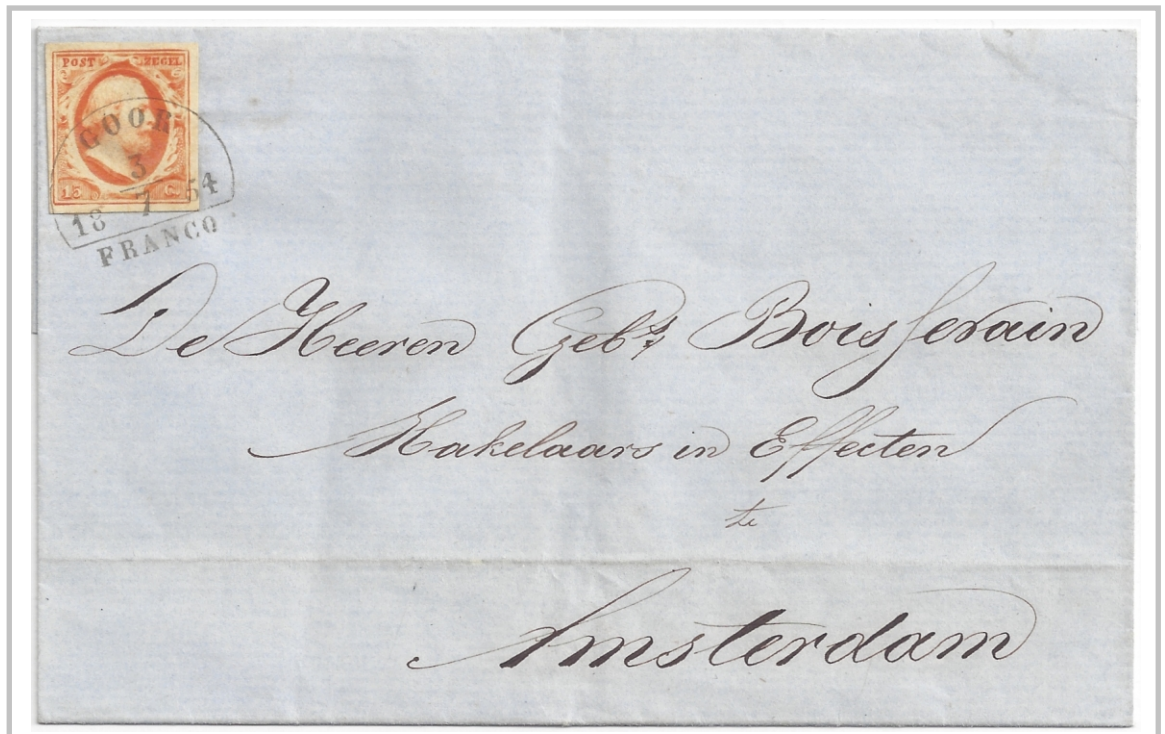 POST ZEGEL
GOOR
3
15 C.
18 7 54
FRANCO
De Heeren Gebrs Boissevain
Makelaars in Effecten
te
Amsterdam